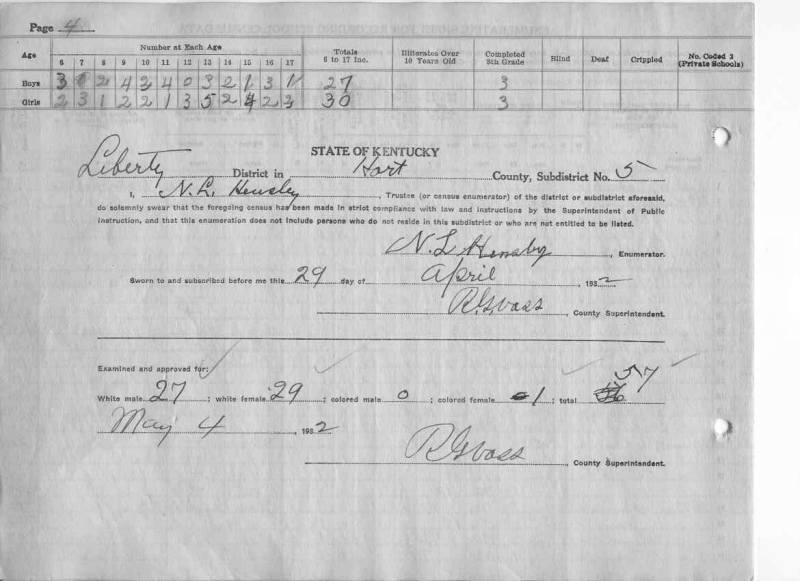 Page 4
Age Number at Each Age Totals 6 to 17 Inc. Illiterates Over 10 Years Old Completed 8th Grade Blind Deaf Crippled No. Coded 3 (Private Schools)
6 7 8 9 10 11 12 13 14 15 16 17
Boys 3 2 4 3 4 0 3 2 1 3 1 27 3
Girls 2 3 1 2 2 1 3 5 2 4 2 3 30 3
STATE OF KENTUCKY
Liberty District in Hart County, Subdistrict No. 5
I, N. L. Hensley, Trustee (or census enumerator) of the district or subdistrict aforesaid,
do solemnly swear that the foregoing census has been made in strict compliance with law and instructions by the Superintendent of Public
Instruction, and that this enumeration does not include persons who do not reside in this subdistrict or who are not entitled to be listed.
N. L. Hensley, Enumerator.
Sworn to and subscribed before me this 29 day of April, 1932
County Superintendent.
Examined and approved for:
White male 27; white female 29; colored male 0; colored female 1; total 57
May 4, 1932
County Superintendent.